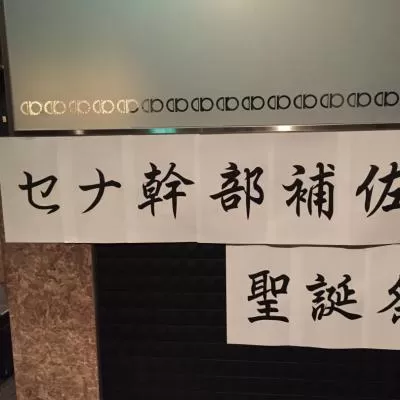 セナ幹部補佐
聖誕